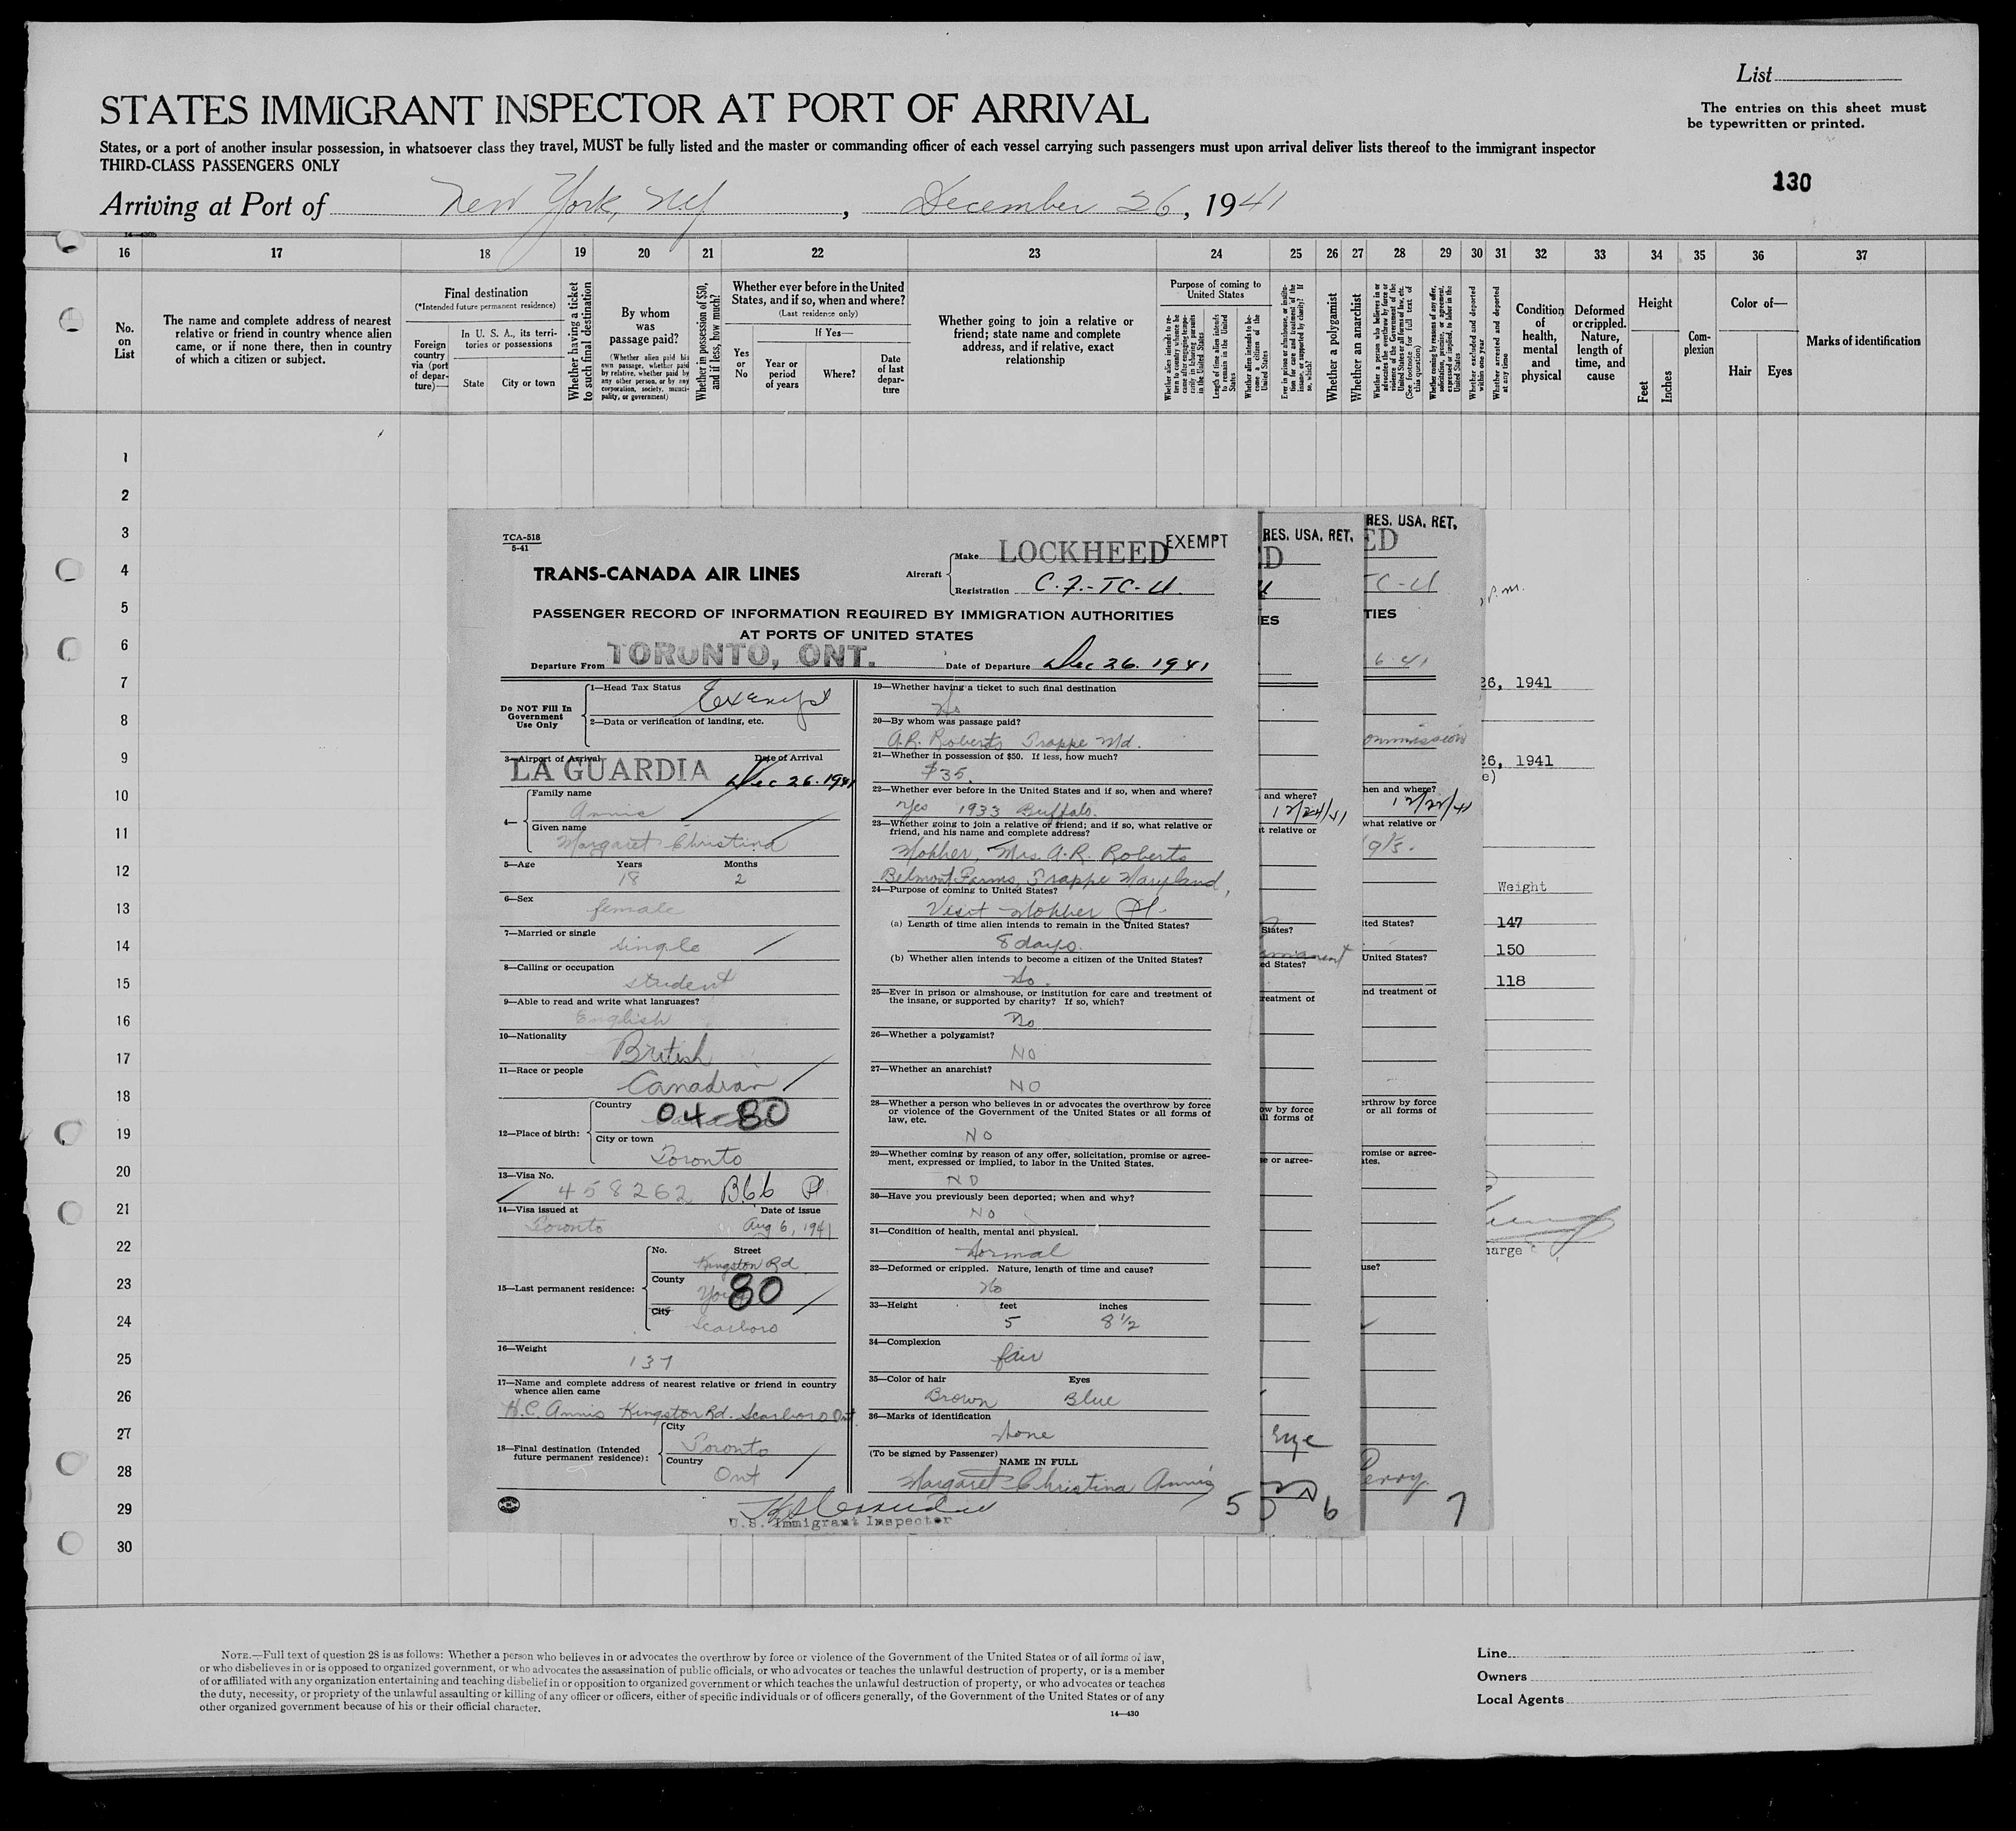 List
STATES IMMIGRANT INSPECTOR AT PORT OF ARRIVAL
The entries on this sheet must
be typewritten or printed.
States, or a port of another insular possession, in whatsoever class they travel, MUST be fully listed and the master or commanding officer of each vessel carrying such passengers must upon arrival deliver lists thereof to the immigrant inspector
THIRD-CLASS PASSENGERS ONLY
130
Arriving at Port of New York, NY, December 26, 1941
16 17 18 19 20 21 22 23 24 25 26 27 28 29 30 31 32 33 34 35 36 37
No. on List
The name and complete address of nearest relative or friend in country whence alien came, or if none there, then in country of which a citizen or subject.
Final destination
(*Intended future permanent residence)
Foreign country via (port of departure)—
In U. S. A., its territories or possessions
State
City or town
Whether having a ticket to such final destination
By whom was passage paid?
(Whether alien paid his own passage, whether paid by relative, whether paid by any other person, or by any corporation, society, municipality, or government)
Whether in possession of $50, and if less, how much?
Whether ever before in the United States, and if so, when and where?
(Last residence only)
Yes or No
If Yes—
Year or period of years
Where?
Date of last departure
Whether going to join a relative or friend; state name and complete address, and if relative, exact relationship
Purpose of coming to United States
Whether alien intends to return to country whence he came after engaging temporarily in laboring pursuits in the United States
Length of time alien intends to remain in the United States
Whether alien intends to become a citizen of the United States
Ever in prison or almshouse, or institution for care and treatment of the insane, or supported by charity? If so, which?
Whether a polygamist
Whether an anarchist
Whether a person who believes in or advocates the overthrow by force or violence of the Government of the United States or all forms of law, etc. (See footnote for full text of this question)
Whether coming by reason of any offer, solicitation, promise, or agreement, expressed or implied, to labor in the United States
Whether excluded and deported within one year
Whether arrested and deported at any time
Condition of health, mental and physical
Deformed or crippled. Nature, length of time, and cause
Height
Feet
Inches
Complexion
Color of—
Hair
Eyes
Marks of identification
1
2
3
4
5
6
7
8
9
10
11
12
13
14
15
16
17
18
19
20
21
22
23
24
25
26
27
28
29
30
TCA-518
5-41
TRANS-CANADA AIR LINES
Aircraft
Make LOCKHEED
EXEMPT
Registration C.F.-TC-U.
PASSENGER RECORD OF INFORMATION REQUIRED BY IMMIGRATION AUTHORITIES
AT PORTS OF UNITED STATES
Departure From TORONTO, ONT.
Date of Departure Dec 26. 1941
Do NOT Fill In
Government
Use Only
1—Head Tax Status Exempt
2—Data or verification of landing, etc.
3—Airport of Arrival Date of Arrival
LA GUARDIA Dec 26. 1941
4—
Family name
Annis
Given name
Margaret Christina
5—Age Years Months
18 2
6—Sex
female
7—Married or single
single
8—Calling or occupation
student
9—Able to read and write what languages?
English
10—Nationality
British
11—Race or people
Canadian
12—Place of birth:
Country
Canada
04 80
City or town
Toronto
13—Visa No.
458262 B66
14—Visa issued at Date of issue
Toronto Aug 6, 1941
15—Last permanent residence:
No. Street
Kingston Rd
County
York
80
City
Scarboro
16—Weight
137
17—Name and complete address of nearest relative or friend in country
whence alien came
H.C. Annis Kingston Rd. Scarboro Ont
18—Final destination (Intended
future permanent residence):
City
Toronto
Country
Ont
19—Whether having a ticket to such final destination
No
20—By whom was passage paid?
A.R. Roberts Trappe Md.
21—Whether in possession of $50. If less, how much?
$35.
22—Whether ever before in the United States and if so, when and where?
Yes 1933 Buffalo.
23—Whether going to join a relative or friend; and if so, what relative or
friend, and his name and complete address?
Mother, Mrs. A.R. Roberts
Belmont Farms, Trappe Maryland,
24—Purpose of coming to United States?
Visit Mother
(a) Length of time alien intends to remain in the United States?
8 days.
(b) Whether alien intends to become a citizen of the United States?
No.
25—Ever in prison or almshouse, or institution for care and treatment of
the insane, or supported by charity? If so, which?
No
26—Whether a polygamist?
NO
27—Whether an anarchist?
NO
28—Whether a person who believes in or advocates the overthrow by force
or violence of the Government of the United States or all forms of
law, etc.
NO
29—Whether coming by reason of any offer, solicitation, promise or agree-
ment, expressed or implied, to labor in the United States.
NO
30—Have you previously been deported; when and why?
NO
31—Condition of health, mental and physical.
Normal
32—Deformed or crippled. Nature, length of time and cause?
No
33—Height feet inches
5 8 1/2
34—Complexion
fair
35—Color of hair Eyes
Brown Blue
36—Marks of identification
None
(To be signed by Passenger)
NAME IN FULL
Margaret Christina Annis
U.S. Immigrant Inspector
5
RES. USA. RET.
D
ES
and where?
12/24/41
t relative or
States?
ed States?
reatment of
ow by force
all forms of
se or agree-
6
RES. USA. RET.
ED
TC-U
TIES
6-41
ommission
hen and where?
12/22/41
what relative or
ited States?
United States?
nd treatment of
erthrow by force
or all forms of
romise or agree-
ates.
use?
Perry
7
P.M.
26, 1941
26, 1941
e)
Weight
147
150
118
harge
NOTE.—Full text of question 28 is as follows: Whether a person who believes in or advocates the overthrow by force or violence of the Government of the United States or of all forms of law,
or who disbelieves in or is opposed to organized government, or who advocates the assassination of public officials, or who advocates or teaches the unlawful destruction of property, or is a member
of or affiliated with any organization entertaining and teaching disbelief in or opposition to organized government or which teaches the unlawful destruction of property, or who advocates or teaches
the duty, necessity, or propriety of the unlawful assaulting or killing of any officer or officers, either of specific individuals or of officers generally, of the Government of the United States or of any
other organized government because of his or their official character.
14—430
Line
Owners
Local Agents